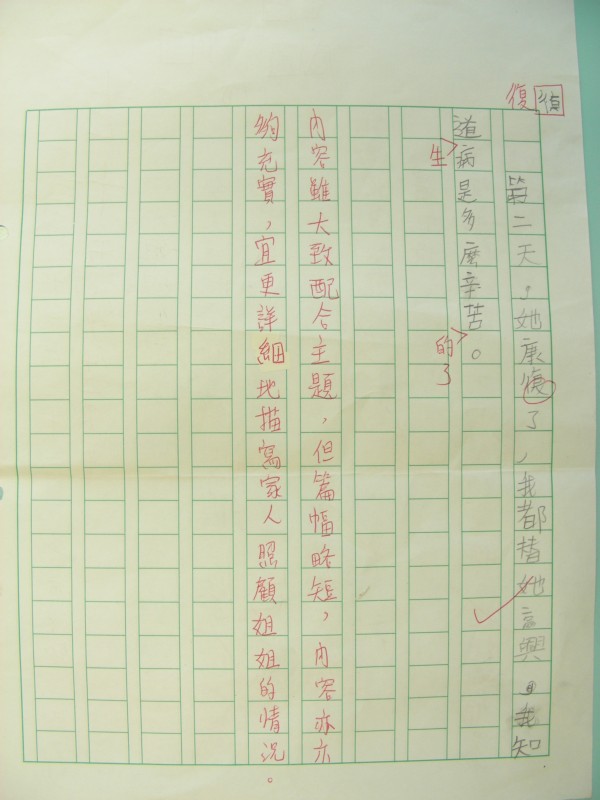 復 復
第二天，她康復了，我都替她高興。我知
道病是多麼辛苦。
生
的了
內容雖大致配合主題，但篇幅略短，內容亦不
夠充實，宜更詳細地描寫家人照顧姐姐的情況。